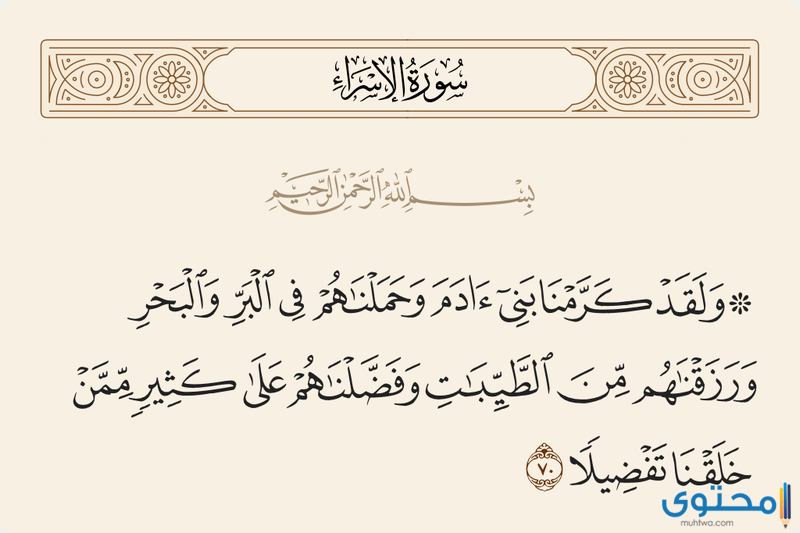 سُورَةُ الإِسْرَاءِ
بِسْمِ ٱللَّهِ ٱلرَّحْمَٰنِ ٱلرَّحِيمِ
۞ وَلَقَدْ كَرَّمْنَا بَنِىٓ ءَادَمَ وَحَمَلْنَٰهُمْ فِى ٱلْبَرِّ وَٱلْبَحْرِ
وَرَزَقْنَٰهُم مِّنَ ٱلطَّيِّبَٰتِ وَفَضَّلْنَٰهُمْ عَلَىٰ كَثِيرٍ مِّمَّنْ
خَلَقْنَا تَفْضِيلًا ٧٠
محتوى
muhtwa.com